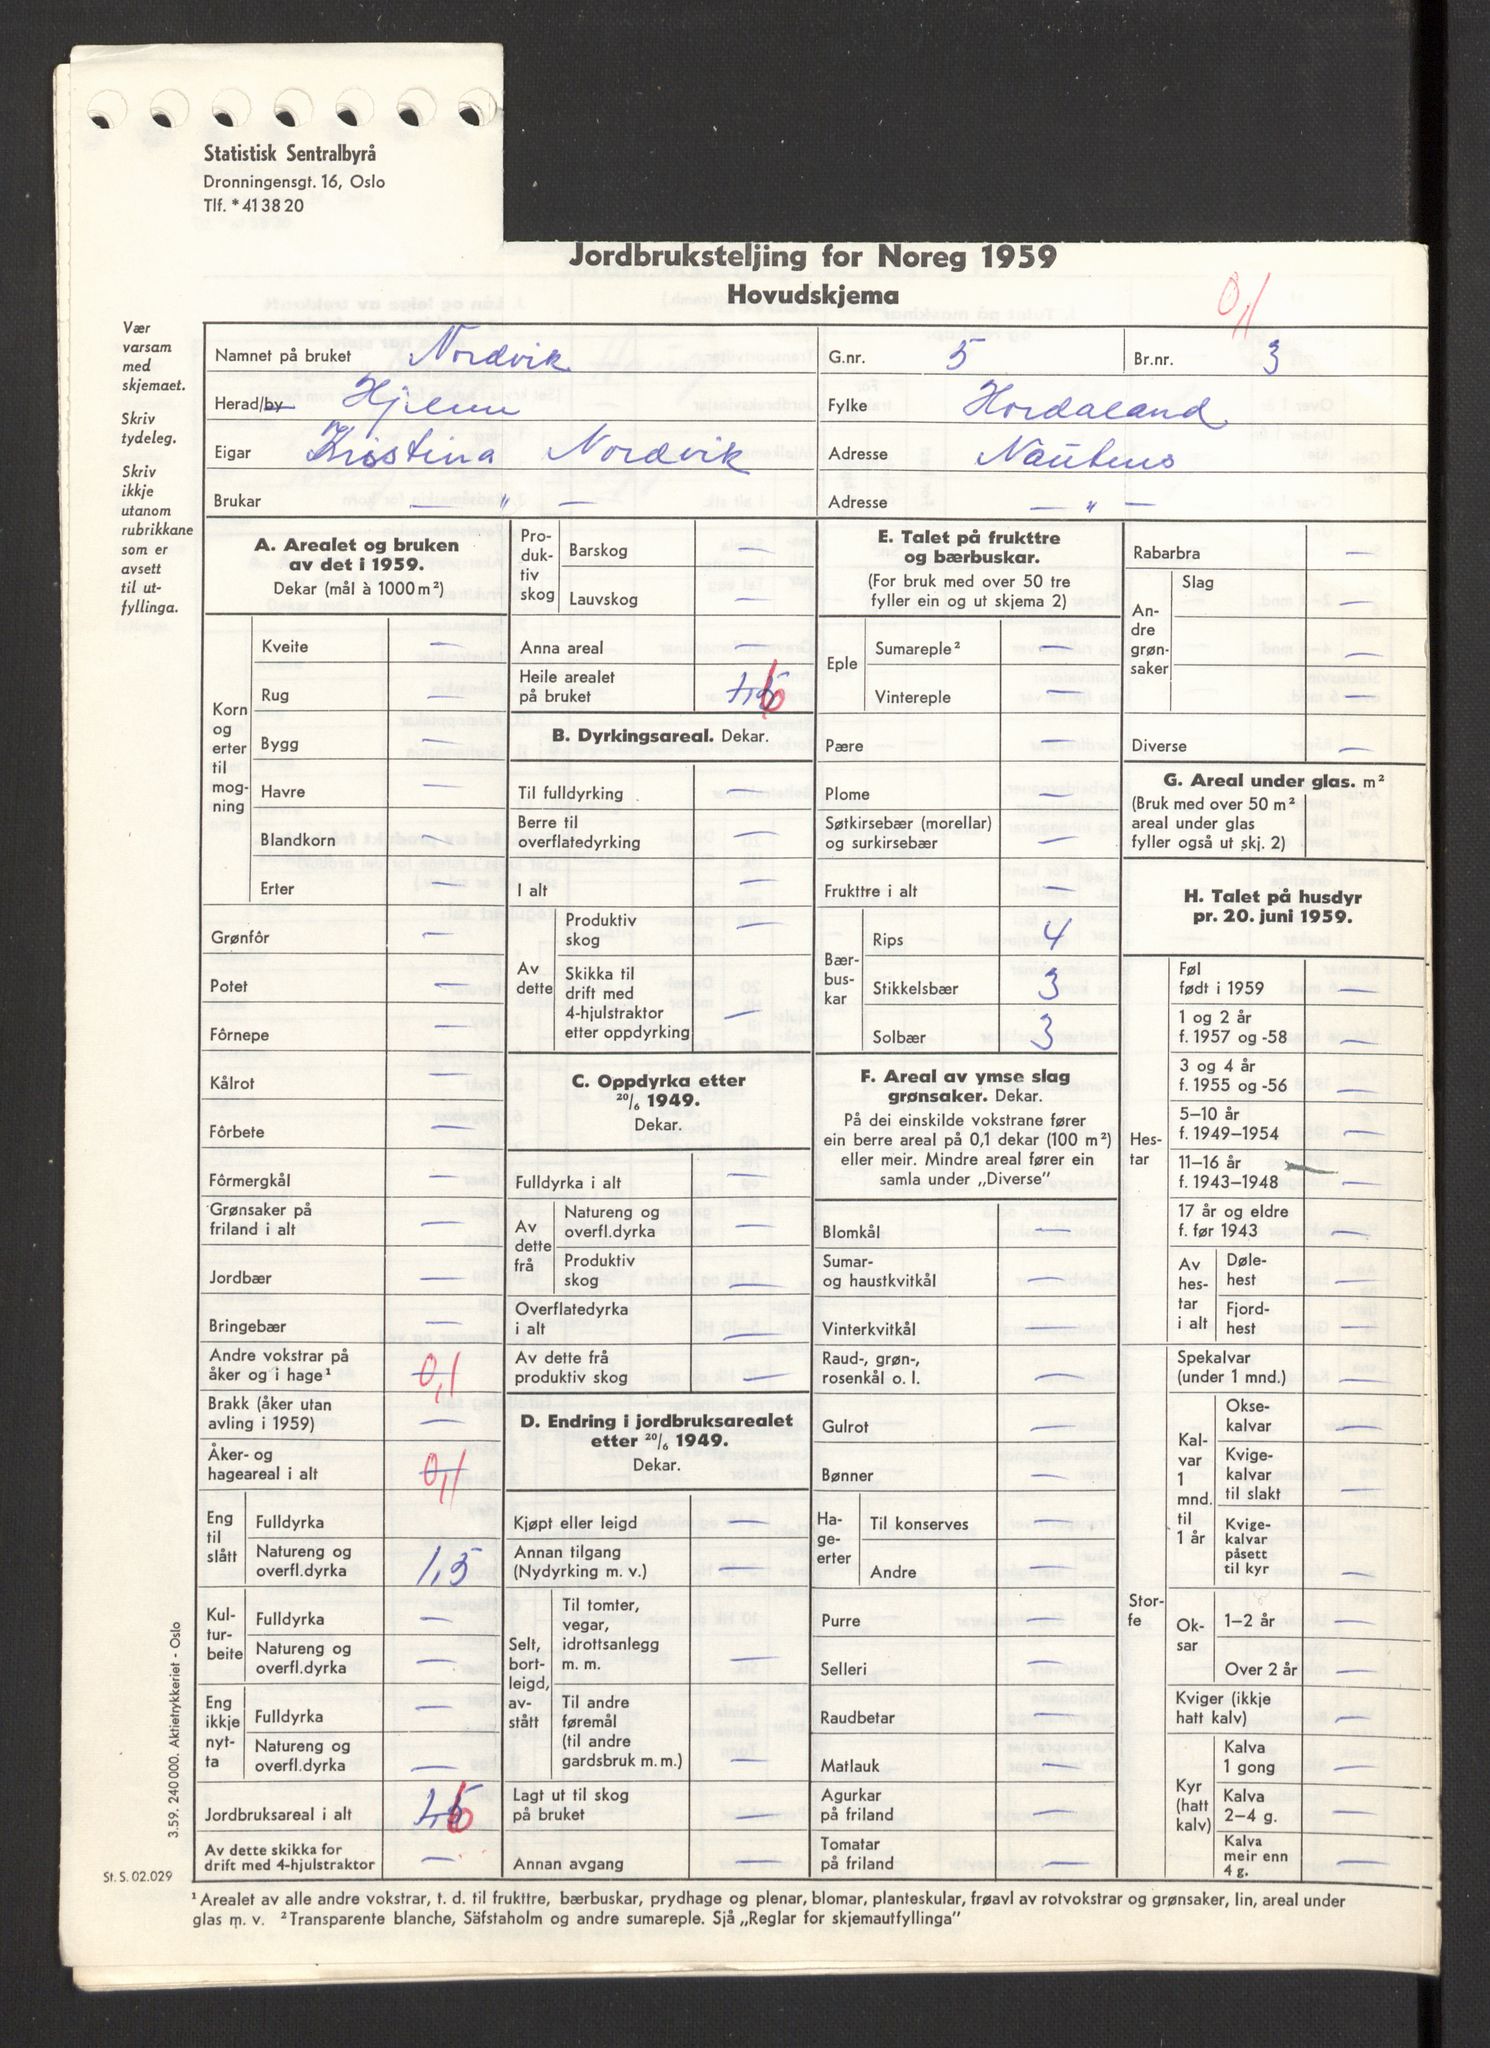 Statistisk Sentralbyrå
Dronningensgt. 16, Oslo
Tlf. * 41 38 20
Jordbruksteljing for Noreg 1959
Hovudskjema
0,1
Vær
varsam
med
skjemaet.
Skriv
tydeleg.
Skriv
ikkje
utanom
rubrikkane
som er
avsett
til ut-
fyllinga.
Namnet på bruket Nordvik
G.nr. 5 Br.nr. 3
Herad/by
Fylke Hordaland
Eigar Kristina Nordvik
Adresse
Brukar — " —
Adresse — " —
A. Arealet og bruken
av det i 1959.
Dekar (mål à 1000 m²)
Korn
og
erter
til
mog-
ning
Kveite —
Rug —
Bygg —
Havre —
Blandkorn —
Erter —
Grønfôr —
Potet —
Fôrnepe —
Kålrot —
Fôrbete —
Fôrmergkål —
Grønsaker på
friland i alt —
Jordbær —
Bringebær —
Andre vokstrar på
åker og i hage¹ 0,1
Brakk (åker utan
avling i 1959) —
Åker- og
hageareal i alt 0,1
Eng
til
slått
Fulldyrka —
Natureng og
overfl.dyrka 1,5
Kul-
tur-
beite
Fulldyrka —
Natureng og
overfl.dyrka —
Eng
ikkje
nyt-
ta
Fulldyrka —
Natureng og
overfl.dyrka —
Jordbruksareal i alt 1,6
Av dette skikka for
drift med 4-hjulstraktor —
Pro-
duk-
tiv
skog
Barskog —
Lauvskog —
Anna areal —
Heile arealet
på bruket 1,6
B. Dyrkingsareal. Dekar.
Til fulldyrking —
Berre til
overflatedyrking —
I alt —
Av
dette
Produktiv
skog —
Skikka til
drift med
4-hjulstraktor
etter oppdyrking —
C. Oppdyrka etter
20/6 1949.
Dekar.
Fulldyrka i alt —
Av
dette
frå
Natureng og
overfl.dyrka —
Produktiv
skog —
Overflatedyrka
i alt —
Av dette frå
produktiv skog —
D. Endring i jordbruksarealet
etter 20/6 1949.
Dekar.
Kjøpt eller leigd —
Annan tilgang
(Nydyrking m. v.) —
Selt,
bort-
leigd,
av-
stått
Til tomter,
vegar,
idrottsanlegg
m. m. —
Til andre
føremål
(til andre
gardsbruk m. m.) —
Lagt ut til skog
på bruket —
Annan avgang —
E. Talet på frukttre
og bærbuskar.
(For bruk med over 50 tre
fyller ein og ut skjema 2)
Eple
Sumareple² —
Vintereple —
Pære —
Plome —
Søtkirsebær (morellar)
og surkirsebær —
Frukttre i alt —
Bær-
bus-
kar
Rips 4
Stikkelsbær 3
Solbær 3
F. Areal av ymse slag
grønsaker. Dekar.
På dei einskilde vokstrane fører
ein berre areal på 0,1 dekar (100 m²)
eller meir. Mindre areal fører ein
samla under „Diverse"
Blomkål —
Sumar-
og haustkvitkål —
Vinterkvitkål —
Raud-, grøn-,
rosenkål o. l. —
Gulrot —
Bønner —
Ha-
ge-
erter
Til konserves —
Andre —
Purre —
Selleri —
Raudbetar —
Matlauk —
Agurkar
på friland —
Tomatar
på friland —
Rabarbra —
An-
dre
grøn-
saker
Slag —
—
—
Diverse —
G. Areal under glas. m²
(Bruk med over 50 m²
areal under glas
fyller også ut skj. 2)
H. Talet på husdyr
pr. 20. juni 1959.
Hes-
tar
Føl
født i 1959 —
1 og 2 år
f. 1957 og -58 —
3 og 4 år
f. 1955 og -56 —
5–10 år
f. 1949–1954 —
11–16 år
f. 1943–1948 —
17 år og eldre
f. før 1943 —
Av
hes-
tar
i alt
Døle-
hest —
Fjord-
hest —
Stor-
fe
Spekalvar
(under 1 mnd.) —
Kal-
var
1
mnd.
til
1 år
Okse-
kalvar —
Kvige-
kalvar
til slakt —
Kvige-
kalvar
påsett
til kyr —
Ok-
sar
1–2 år —
Over 2 år —
Kviger (ikkje
hatt kalv) —
Kyr
(hatt
kalv)
Kalva
1 gong —
Kalva
2–4 g. —
Kalva
meir enn
4 g. —
3.59. 240 000. Aktietrykkeriet - Oslo
St. S. 02.029
¹ Arealet av alle andre vokstrar, t. d. til frukttre, bærbuskar, prydhage og plenar, blomar, planteskular, frøavl av rotvokstrar og grønsaker, lin, areal under
glas m. v. ² Transparente blanche, Säfstaholm og andre sumareple. Sjå „Reglar for skjemautfyllinga"